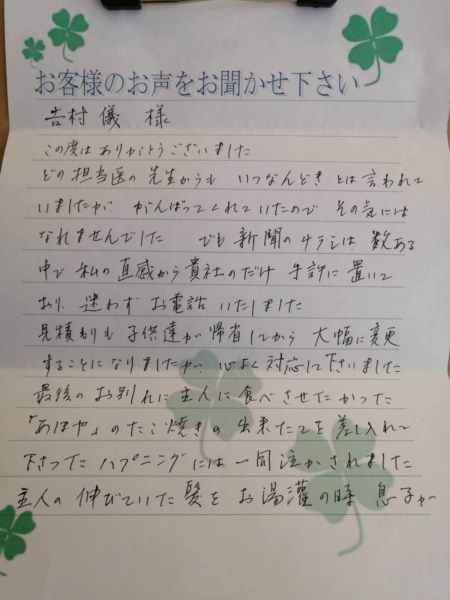 お客様のお声をお聞かせ下さい
吉村儀 様
この度はありがとうございました
どの担当医の先生からも いつなんどきとは言われて
いましたが がんばってくれていたので その気には
なれませんでした でも新聞のチラシは数ある
中で私の直感から貴社のだけ手許に置いて
おり、迷わずお電話いたしました
見積もりも子供達が帰省してから大幅に変更
することになりましたが、心よく対応して下さいました
最後のお別れに主人に食べさせたかった
「あほや」のたこ焼きの出来たてを差し入れて
下さったハプニングには一同泣かされました
主人の伸びていた髪をお湯灌の時 息子が